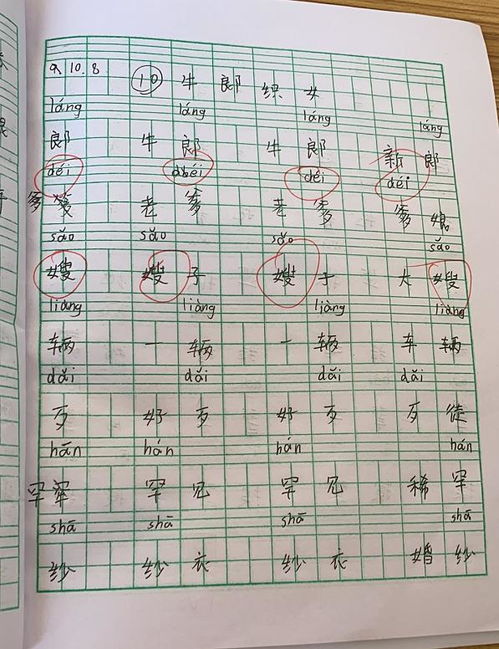 9.10.8 10 牛郎织女
láng láng láng láng
郎 牛郎 牛郎 新郎
déi déi déi
爹 老爹 老爹 爹娘
sǎo sǎo sǎo sǎo
嫂 嫂子 嫂子 大嫂
liàng liàng liàng liàng
辆 一辆 一辆 车辆
dǎi dǎi dǎi dǎi
歹 好歹 好歹 歹徒
hǎn hán hán hán
罕 罕见 罕见 稀罕
shā shā shā shā
纱 纱衣 纱衣 婚纱